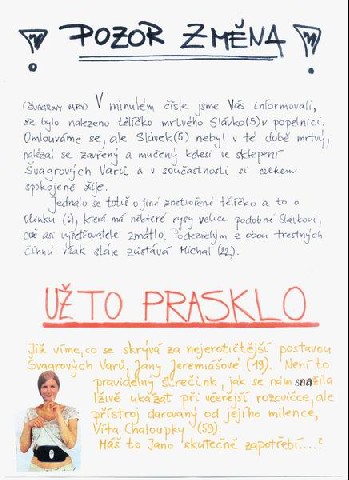 POZOR ZMĚNA
V minulém čísle jsme Vás informovali,
že bylo nalezeno tělíčko mrtvého Slávka(5) v popelnici.
Omlouváme se, ale Slávek(5) nebyl v té době mrtvý,
nalézal se zavřený a mučený kdesi ve sklepení
Švagrových Varů a v současnosti si celkem
spokojeně žije.
Jednalo se totiž o jiné znetvořené tělíčko a to o
která má některé rysy velice podobné Slávkovi,
což asi vyšetřovatele zmátlo, podezřelým z obou trestných
činů však stále zůstává Michal (22).
UŽ TO PRASKLO
Již víme, co se skrývá za nejerotičtější postavou
Švagrových Varů, Jany Jeremiášové (19). Není to
pravidelný strečink, jak se nám snažila
lživě ukázat při včerejší rozcvičce, ale
přístroj darovaný od jejího milence,
Víta Chaloupky (59).
Máš to Jano skutečně zapotřebí...?